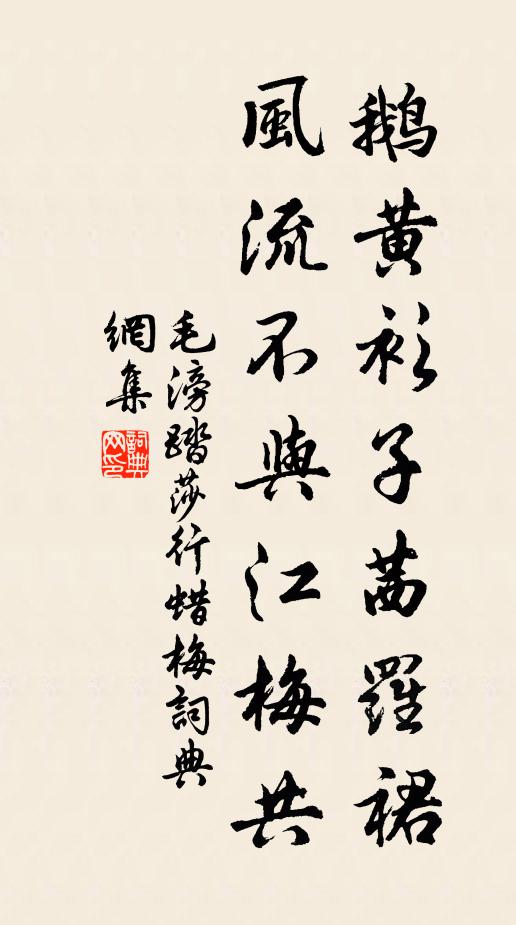 鵝黃衫子茜羅裙
風流不與江梅共
毛滂踏莎行蜡梅詞典
網集
詞典
网印